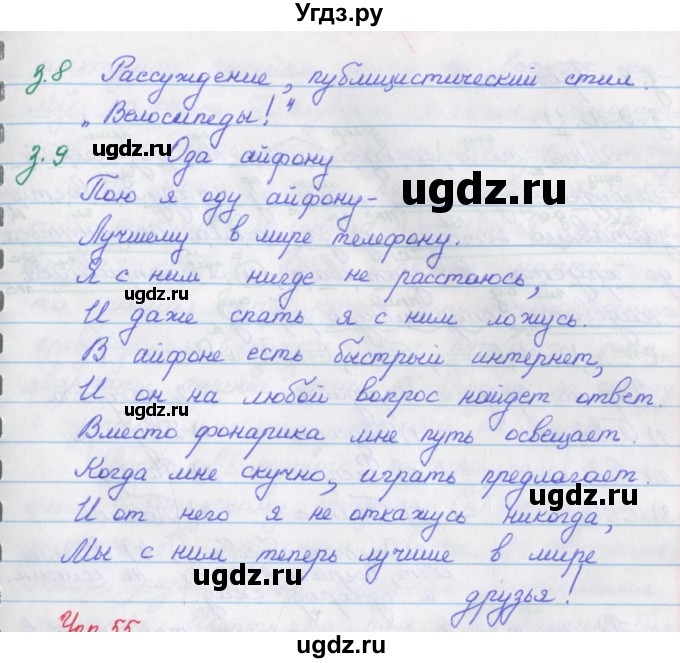 Угдз.ру
з.8 Рассуждение, публицистический стил.
„Велосипеды!"
ugdz.ru
з.9 Ода айфону
ugdz.ru
Пою я оду айфону-
Лучшему в мире телефону.
Я с ним нигде не расстаюсь,
ugdz.ru
И даже спать я с ним ложусь.
В айфоне есть быстрый интернет,
И он на любой вопрос найдет ответ.
ugdz.ru
Вместо фонарика мне путь освещает.
Когда мне скучно, играть предлагает.
ugdz.ru
И от него я не откажусь никогда,
Мы с ним теперь лучшие в мире
ugdz.ru
друзья!
Упр.55
ugdz.ru